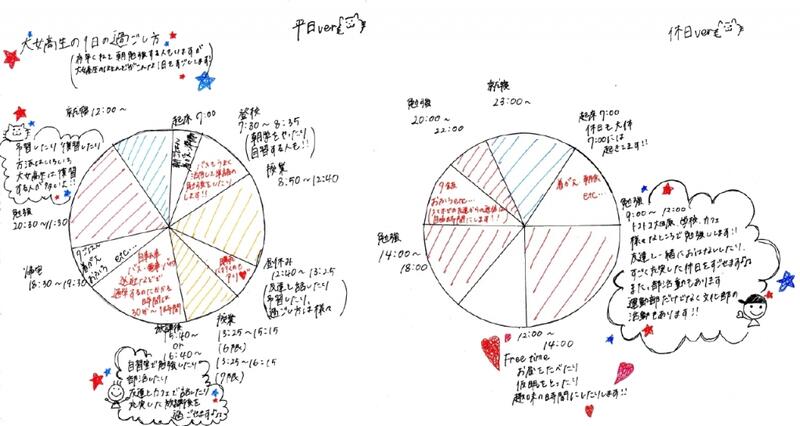 大女高生の1日の過ごし方
平日ver
休日ver
就寝 12:00〜
起床 7:00
登校
7:30〜8:35
朝学をやったり
自習する人も!!
授業
8:50〜12:40
昼休み
12:40〜13:25
友達と話したり
予習したり、
過ごし方は様々
授業
13:25〜15:15
(6限)
13:25〜16:15
(7限)
放課後
15:40〜
or
16:40〜
自習室で勉強したり
部活したり
友達とカフェで話したり
充実した放課後を
過ごせます
帰宅
18:30〜19:30
勉強
20:30〜11:30
予習したり復習したり
方法はいろいろ
大女高生は復習
する人が多いよ!!
ごはん
着がえ
おふろ
etc...
就寝
23:00〜
起床 7:00
休日も大体
7:00には
起きてます!!
着がえ 朝食
etc...
勉強
9:00〜12:00
学校、カフェ
様々なところで勉強します!!
友達と一緒におはなししたり、
すごく充実した休日をすごせます
また、部活動もあります
運動部だけでなく文化部の
活動もあります!!
12:00〜
14:00
Free time
お昼をたべたり
仮眠をとったり
趣味の時間にしたりします!!
勉強
14:00〜
18:00
夕食
おふろetc...
勉強
20:00〜
22:00